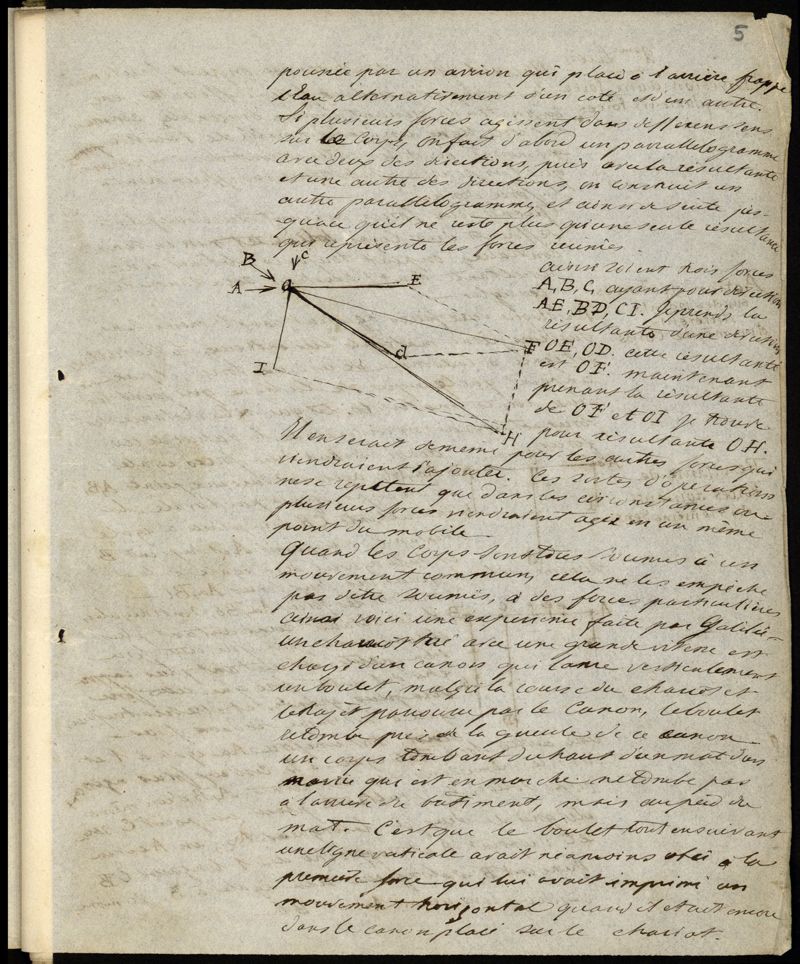 5
poussée par un aviron qui placé à l'arrière frappe
l'eau alternativement d'un coté et d'un autre.
Si plusieurs forces agissent dans differens sens
sur le corps, on fait d'abord un parallelogramme
avec deux des directions, puis avec la résultante
et une autre des directions, on construit un
autre parallelogramme, et ainsi de suite jus-
quace qu'il ne reste plus qu'une seule résultante
qui représente les forces réunies.
ainsi soient trois forces
A, B, C, ayant pour direction
AE, BD, CI. Je prends la
résultante d'une direction
OE, OD. cette résultante
est OF. maintenant
prenant la résultante
de OF et OI je trouve
pour résultante OH.
B C
A O E
d F
I
H
Il en serait de meme pour les autres forces qui
viendraient s'ajouter. Ces sortes d'opérations
ne se repetent que dans les circonstances ou
plusieurs forces viendraient agir en un même
point du mobile
Quand les corps sont tous soumis à un
mouvement commun, cela ne les empêche
pas d'être soumis, à des forces particulières
ainsi voici une experience faite par Galilée-
un chariot tiré avec une grande vitesse est
chargé d'un canon qui lance verticalement
un boulet, malgré la course du chariot et
le trajet parcouru par le canon, le boulet
retombe près de la gueule de ce canon
un corps tombant du haut d'un mat d'un
navire qui est en marche ne tombe pas
à l'arrière du batiment, mais au pied du
mat. C'est que le boulet tout en suivant
une ligne verticale avait néamoins obéi à la
première force qui lui avait imprimé un
mouvement horizontal quand il etait encore
dans le canon placé sur le chariot.